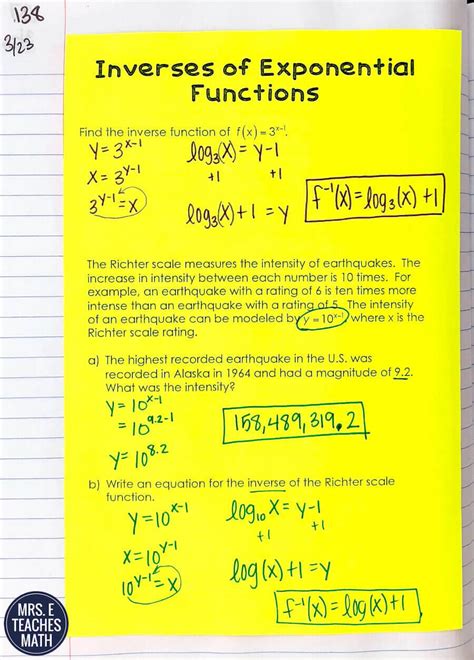 138
3/23
Inverses of Exponential
Functions
Find the inverse function of f(x) = 3^{x-1}.
y = 3^{x-1}
x = 3^{y-1}
3^{y-1} = x
log₃(x) = y-1
+1 +1
log₃(x)+1 = y
f⁻¹(x) = log₃(x) +1
The Richter scale measures the intensity of earthquakes. The
increase in intensity between each number is 10 times. For
example, an earthquake with a rating of 6 is ten times more
intense than an earthquake with a rating of 5. The intensity
of an earthquake can be modeled by y = 10^{x-1} where x is the
Richter scale rating.
a) The highest recorded earthquake in the U.S. was
recorded in Alaska in 1964 and had a magnitude of 9.2.
What was the intensity?
y = 10^{x-1}
= 10^{9.2-1}
y = 10^{8.2}
158,489,319.2
b) Write an equation for the inverse of the Richter scale
function.
y = 10^{x-1}
x = 10^{y-1}
10^{y-1} = x
log₁₀ x = y-1
+1 +1
log(x)+1 = y
f⁻¹(x) = log(x)+1
MRS. E
TEACHES
MATH